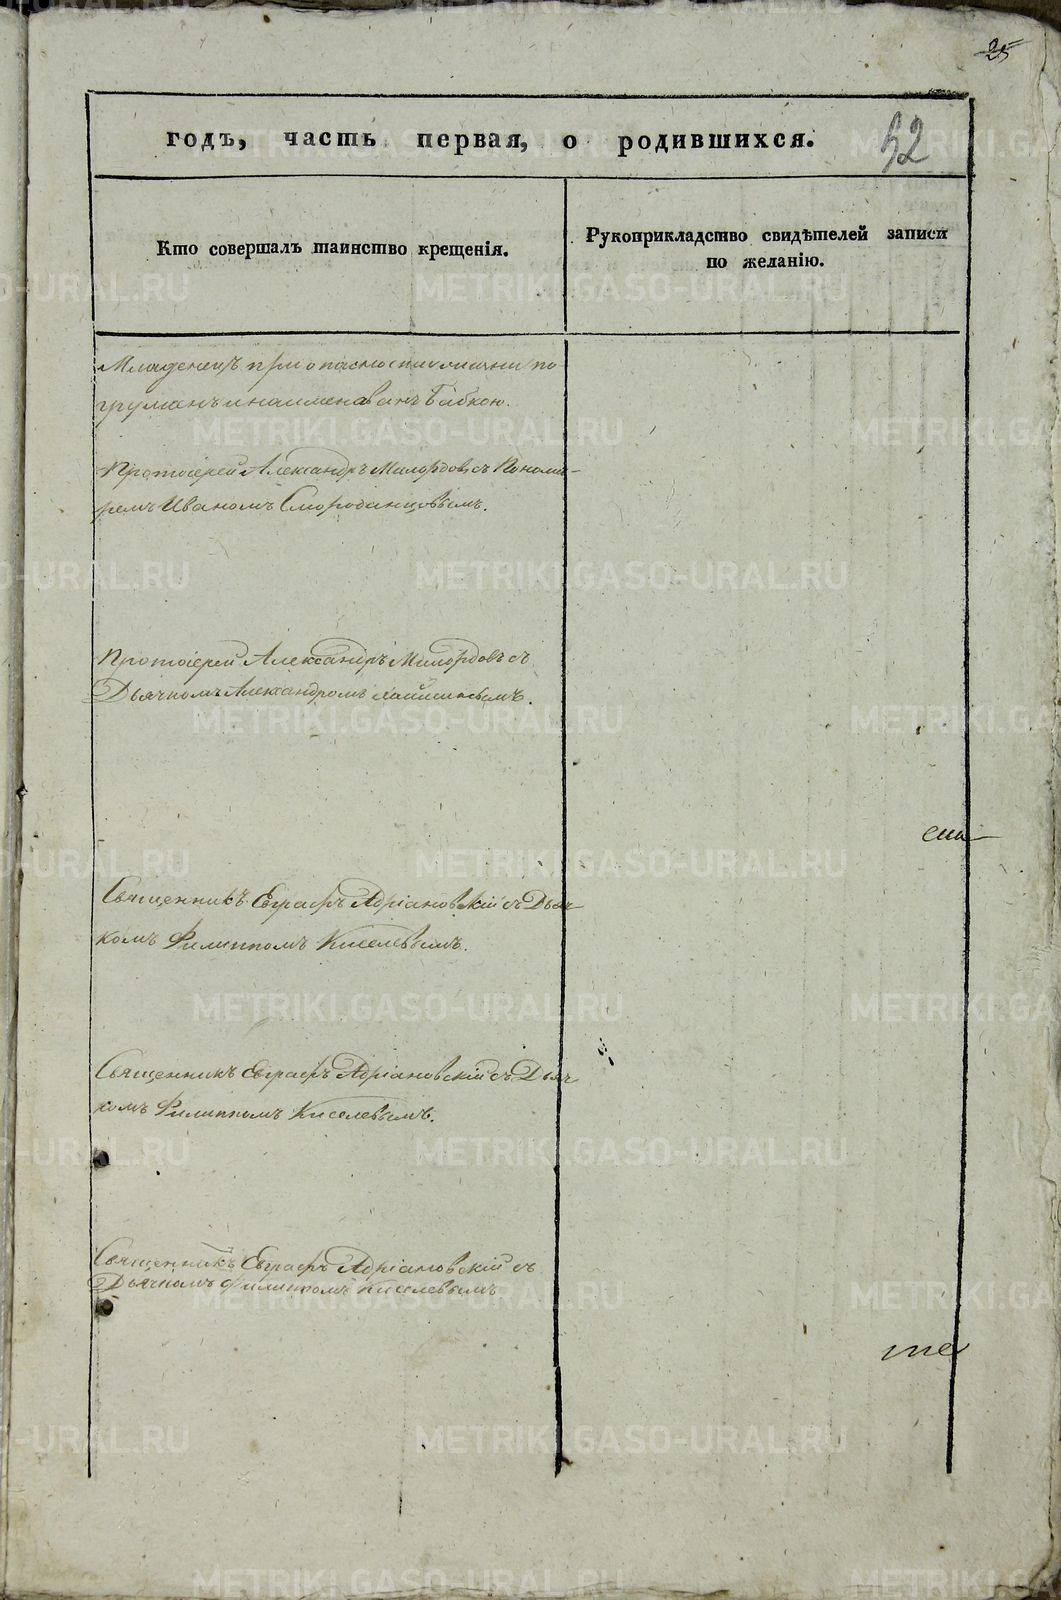 25
годъ, часть первая, о родившихся.
52
Кто совершалъ таинство крещенія.
Рукоприкладство свидѣтелей записи
по желанію.
Младенецъ при опасности жизни по
груженъ и наименованъ Бабкою.
Протоіерей Александръ Милордовъ съ Понома-
ремъ Иваномъ Смородинцовымъ.
Протоіерей Александръ Милордовъ съ
Дьячкомъ Александромъ
Священникъ Евграфъ Адріановскій съ Дьяч
комъ Филиппомъ Киселевымъ.
Священникъ Евграфъ Адріановскій съ Дьяч
комъ Филиппомъ Киселевымъ.
Священникъ Евграфъ Адріановскій съ
Дьячкомъ Филиппомъ Киселевымъ
METRIKI.GASO-URAL.RU